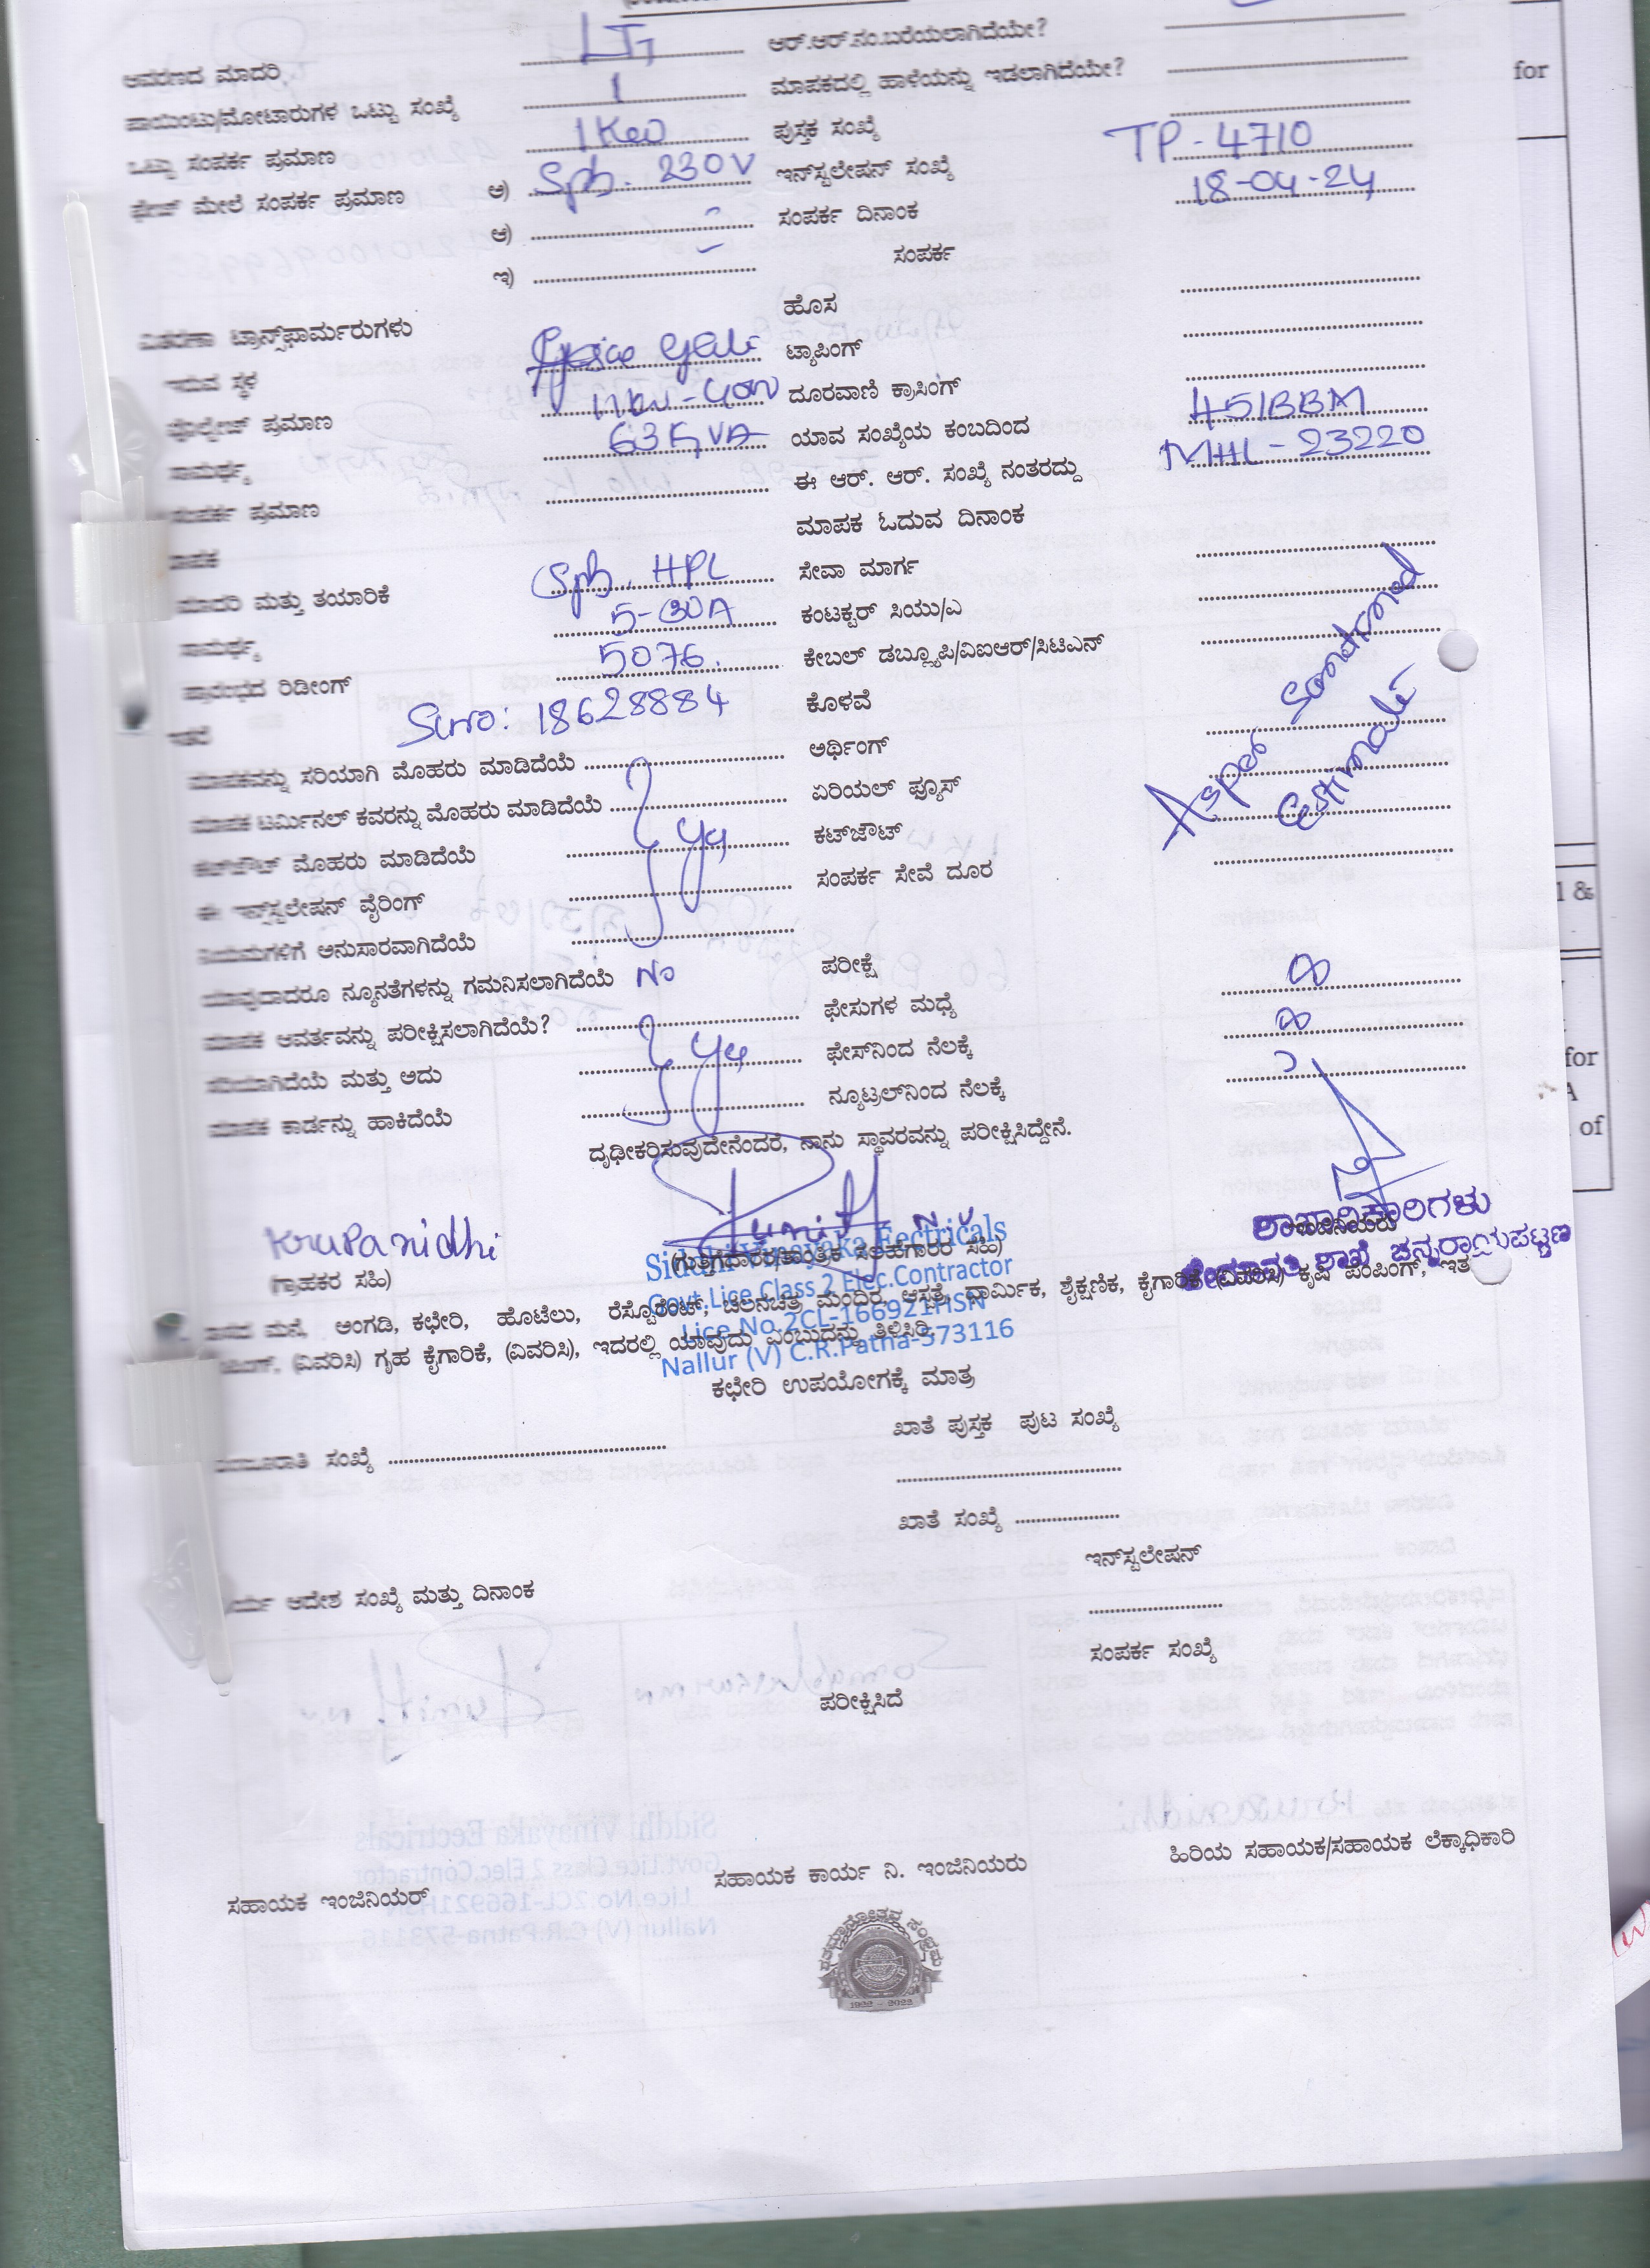 LT1 ಆರ್.ಆರ್.ನಂ.ಬರೆಯಲಾಗಿದೆಯೇ?
ಆವರಣದ ಮಾದರಿ 1 ಮಾಪಕದಲ್ಲಿ ಹಾಳೆಯನ್ನು ಇಡಲಾಗಿದೆಯೇ?
ಪಾಯಿಂಟು/ಮೋಟಾರುಗಳ ಒಟ್ಟು ಸಂಖ್ಯೆ 1Kw ಪುಸ್ತಕ ಸಂಖ್ಯೆ TP-4710
ಒಟ್ಟು ಸಂಪರ್ಕ ಪ್ರಮಾಣ ಅ) Sph. 230V ಇನ್‌ಸ್ಟಲೇಷನ್ ಸಂಖ್ಯೆ 18-04-24
ಫೇಜ್ ಮೇಲೆ ಸಂಪರ್ಕ ಪ್ರಮಾಣ ಆ) - ಸಂಪರ್ಕ ದಿನಾಂಕ
ಇ) - ಸಂಪರ್ಕ
ವಿತರಣಾ ಟ್ರಾನ್ಸ್‌ಫಾರ್ಮರುಗಳು ಹೊಸ
ಇರುವ ಸ್ಥಳ ಟ್ಯಾಪಿಂಗ್
ವೋಲ್ಟೇಜ್ ಪ್ರಮಾಣ 11kv-400v ದೂರವಾಣಿ ಕ್ರಾಸಿಂಗ್
ಸಾಮರ್ಥ್ಯ 63KVA ಯಾವ ಸಂಖ್ಯೆಯ ಕಂಬದಿಂದ 451BBM
ಸಂಪರ್ಕ ಪ್ರಮಾಣ ಈ ಆರ್. ಆರ್. ಸಂಖ್ಯೆ ನಂತರದ್ದು MHL-23220
ಮಾಪಕ ಮಾಪಕ ಓದುವ ದಿನಾಂಕ
ಮಾದರಿ ಮತ್ತು ತಯಾರಿಕೆ Sph. HPL ಸೇವಾ ಮಾರ್ಗ
ಸಾಮರ್ಥ್ಯ 5-30A ಕಂಟಕ್ಟರ್ ಸಿಯು/ಎ
ಪ್ರಾರಂಭದ ರಿಡೀಂಗ್ 5076. ಕೇಬಲ್ ಡಬ್ಲ್ಯೂಪಿ/ವಿಐಆರ್/ಸಿಟಿಎನ್
ಇತರೆ Slno: 18628884 ಕೊಳವೆ
As per sanctioned
estimate
ಮಾಪಕವನ್ನು ಸರಿಯಾಗಿ ಮೊಹರು ಮಾಡಿದೆಯೆ ಅರ್ಥಿಂಗ್
ಮಾಪಕ ಟರ್ಮಿನಲ್ ಕವರನ್ನು ಮೊಹರು ಮಾಡಿದೆಯೆ ಏರಿಯಲ್ ಫ್ಯೂಸ್
ಕಟ್‌ಔಟ್ ಮೊಹರು ಮಾಡಿದೆಯೆ yes ಕಟ್‌ಔಟ್
ಈ ಇನ್ಸ್‌ಟಲೇಷನ್ ವೈರಿಂಗ್ ಸಂಪರ್ಕ ಸೇವೆ ದೂರ
ನಿಯಮಗಳಿಗೆ ಅನುಸಾರವಾಗಿದೆಯೆ
ಯಾವುದಾದರೂ ನ್ಯೂನತೆಗಳನ್ನು ಗಮನಿಸಲಾಗಿದೆಯೆ No ಪರೀಕ್ಷೆ
ಮಾಪಕ ಆವರ್ತವನ್ನು ಪರೀಕ್ಷಿಸಲಾಗಿದೆಯೆ? ಫೇಸುಗಳ ಮಧ್ಯೆ
ಸರಿಯಾಗಿದೆಯೆ ಮತ್ತು ಅದು yes ಫೇಸ್‌ನಿಂದ ನೆಲಕ್ಕೆ
ಮಾಪಕ ಕಾರ್ಡನ್ನು ಹಾಕಿದೆಯೆ ನ್ಯೂಟ್ರಲ್‌ನಿಂದ ನೆಲಕ್ಕೆ
ದೃಢೀಕರಿಸುವುದೇನೆಂದರೆ, ನಾನು ಸ್ಥಾವರವನ್ನು ಪರೀಕ್ಷಿಸಿದ್ದೇನೆ.
Krupanidhi Punith N.V ಶಾಖಾಧಿಕಾರಿಗಳು
(ಗ್ರಾಹಕರ ಸಹಿ) (ಗುತ್ತಿಗೆದಾರರ/ತಾಂತ್ರಿಕ ಸಲಹೆಗಾರರ ಸಹಿ) ಇಂಜಿನಿಯರು
ಶಾಖೆ ಚನ್ನರಾಯಪಟ್ಟಣ
Siddhi Vinayaka Eectricals
Govt.Lice.Class 2 Elec.Contractor
Lice.No.2CL-166921HSN
Nallur (V) C.R.Patna-573116
ವಾಸದ ಮನೆ, ಅಂಗಡಿ, ಕಛೇರಿ, ಹೊಟೆಲು, ರೆಸ್ಟೋರೆಂಟ್, ಚಲನಚಿತ್ರ ಮಂದಿರ, ಆಸ್ಪತ್ರೆ, ಧಾರ್ಮಿಕ, ಶೈಕ್ಷಣಿಕ, ಕೈಗಾರಿಕೆ (ವಿವರಿಸಿ) ಕೃಷಿ ಪಂಪಿಂಗ್, ಇತರ
(ವಿವರಿಸಿ) ಗೃಹ ಕೈಗಾರಿಕೆ, (ವಿವರಿಸಿ), ಇದರಲ್ಲಿ ಯಾವುದು ಎಂಬುದನ್ನು ತಿಳಿಸಿರಿ.
ಕಛೇರಿ ಉಪಯೋಗಕ್ಕೆ ಮಾತ್ರ
ಖಾತೆ ಪುಸ್ತಕ ಪುಟ ಸಂಖ್ಯೆ
ಮಂಜೂರಾತಿ ಸಂಖ್ಯೆ ....................
ಖಾತೆ ಸಂಖ್ಯೆ ....................
ಇನ್‌ಸ್ಟಲೇಷನ್
ಕಾರ್ಯ ಆದೇಶ ಸಂಖ್ಯೆ ಮತ್ತು ದಿನಾಂಕ
ಸಂಪರ್ಕ ಸಂಖ್ಯೆ
ಪರೀಕ್ಷಿಸಿದೆ
ಸಹಾಯಕ ಇಂಜಿನಿಯರ್ ಸಹಾಯಕ ಕಾರ್ಯ ನಿ. ಇಂಜಿನಿಯರು ಹಿರಿಯ ಸಹಾಯಕ/ಸಹಾಯಕ ಲೆಕ್ಕಾಧಿಕಾರಿ
1922 - 2022
for
1 &
for
A
of